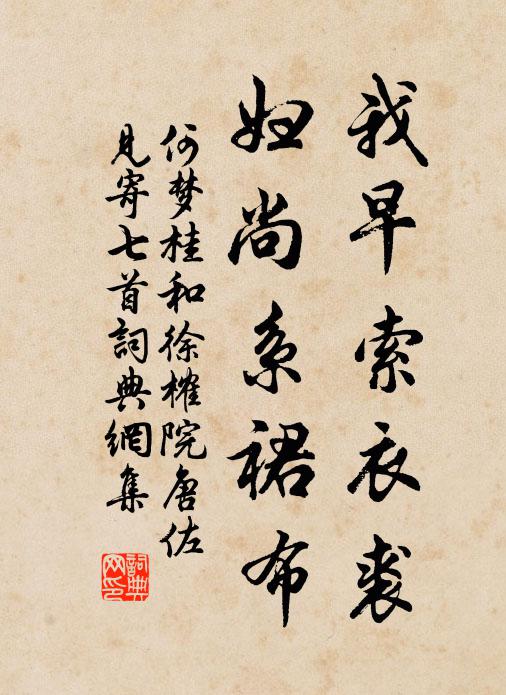 我早索衣裘
妇尚系裙布
何梦桂和徐榷院唐佐
見寄七首詞典網集
詞典
网印